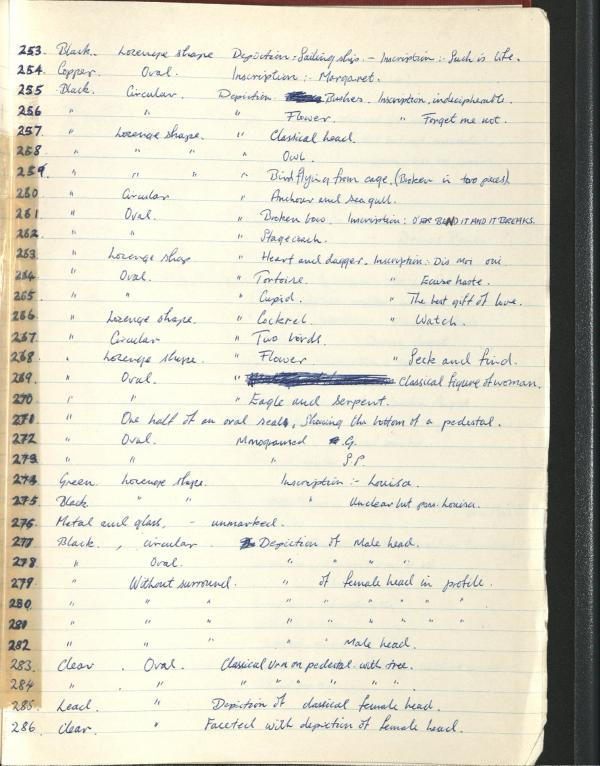 253. Black. Lozenge shape Depiction:- Sailing ship. - Inscription:- Such is life.
254. Copper. Oval. Inscription:- Margaret.
255 Black. Circular. Depiction Bushes. Inscription, indecipherable.
256 " " " Flower. " Forget me not.
257 " Lozenge shape. " Classical head.
258 " " " " Owl.
259 " " " " Bird flying from cage. (Broken in two pieces)
260 " Circular " Anchour and seagull.
261 " Oval. " Broken bow. Inscription: O'ER BEND IT AND IT BREAKS.
262 " " " Stagecoach.
263 " Lozenge shap " Heart and dagger. Inscription: Dis moi oui
264 " Oval. " Tortoise. " haste.
265 " " " Cupid. " The best gift of love.
266 " Lozenge shape. " Cockrel. " Watch.
267 " Circular " Two birds.
268 " Lozenge shape. " Flower " Seek and find.
269 " Oval. " Classical figure of woman.
270 " " " Eagle and serpent.
271 " One half of an oral seal, Showing the bottom of a pedestal.
272 " Oval. Monogramed G.
273 " " " S.P.
274 Green Lozenge shape. Inscription:- Louisa.
275 Black. " " " Unclear but poss. Louisa.
276 Metal and glass, - unmarked.
277 Black. , circular. Depiction of Male head.
278 " Oval. " " " "
279 " Without surround. " of female head in profile.
280. " " " " " " " " "
281 " " " " " " " " "
282 " " " " " Male head.
283. Clear . Oval. Classical Urn on pedestal with tree.
284 " , " " " " " " "
285. Lead. " Depiction of classical female head.
286. Clear. " Faceted with depiction of female head.